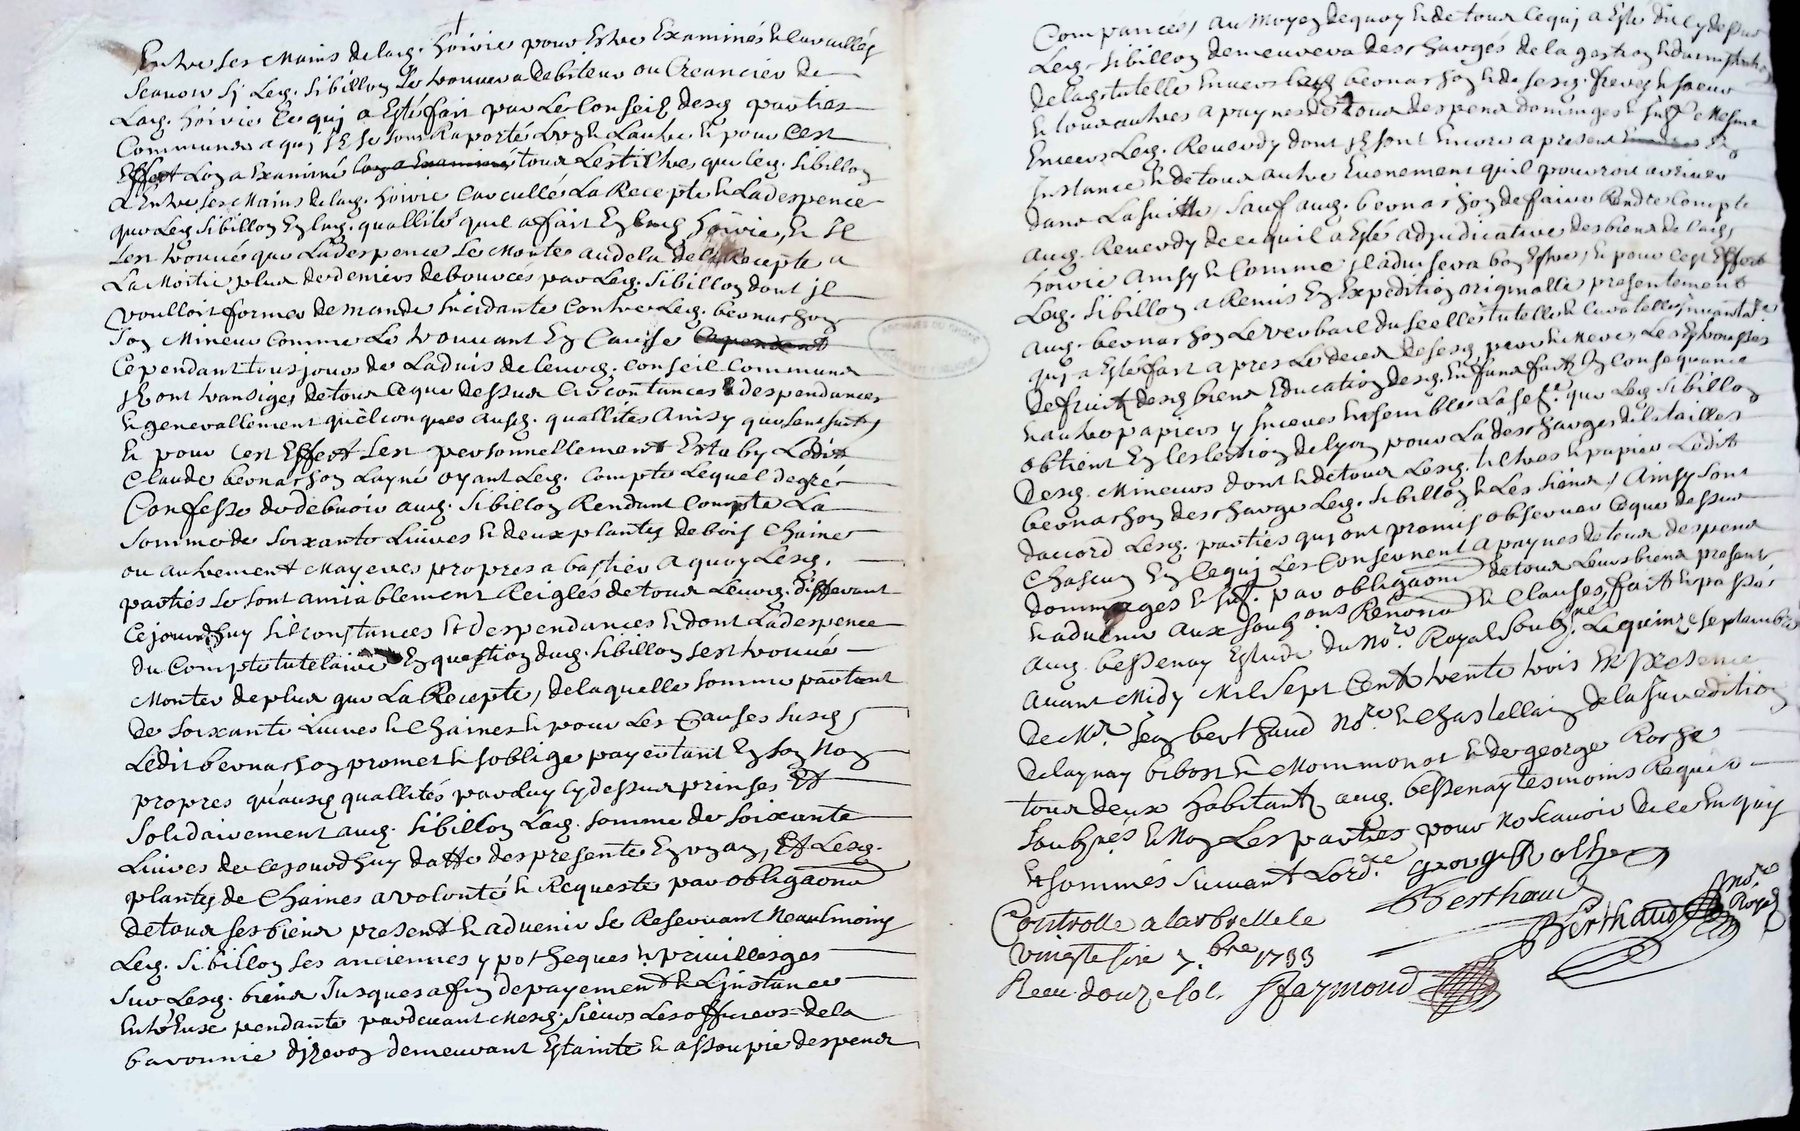 Entre les mains de lad. hoirie pour Estre Examinés & Calcullés
scavoir sy led. Sibillon se trouvera debiteur ou Creancier de
lad. hoirie Ce quj a Esté fait par le Conseil desd. parties
Communs a quj Jls se sont Raporté Lun & Lautre & pour Cest
Effect Lon a Examiné tous les tiltres que led. Sibillon
a Entre ses Mains de lad. hoirie Calcullés La Recepte & La despence
que led. Sibillon En lad. quallité quil a fait En lad. hoirie, & Jl
sest trouvé que La despence se Monte au dela de la Recepte a
La Moitié plus de deniers debourcés par led. Sibillon dont jl
voulloit former demande Jncidante contre led. bernachon
Son Mineur Comme Le trouvant En Cause
Cependant tousjours de Ladvis de leurd. Conseil Commung
Jls ont transigés de tout Ceque dessus Circontances & despendances
& generallement quelconques ausd. quallités Ainsy que sensuits
& pour Cest Effect sest personnellement Estably Ledit
Claude bernachon Layné oyant led. Compte Lequel de gré
Confesse de debvoir aud. Sibillon Rendant Compte La
Somme de soixante Livres & deux plantes de bois Chaine
ou autrement Mayeres propres a bastier a quoy Lesd.
parties se sont amiablement Reiglés de tous Leurd. differant
Cejourdhuy Sirconstances & despendances & dont La despence
du Compte tutelaire En question dud. Sibillon sest trouvé
Monter de plus que La Recepte, de laquelle somme partant
de soixante Livres & Chaines & pour Les Causes susd.
Ledit bernachon promet & soblige payer tant En son Nom
propres quausd. quallités par Luy Cy dessus prinses Et
Solidairement aud. Sibillon Lad. somme de soixante
Livres de cejourdhuy datte des presente En un an, Et Lesd.
plantes de Chaines a volonté & Requeste par obligaons
de tous ses biens present & advenir se Reservant Neaulmoins
Led. Sibillon ses anciennes ypotheques & privilleiges
Sur Lesd. biens Jusques a fin de payement & Linstance
Entre Eux pendante pardevant Mesd. Sieurs Les officiers de la
baronnie dizeron demeurant Estainte & assoupie despens
Compancés, au Moyen de quoy & de tout Cequj a Esté dit Cy dessus
Led. Sibillon demeurera deschargés de la gestion & administration
de lad. tutelle Envers led. bernachon & de sesd. freres & soeur
& tous autres a paynes de tous despens dommages & Jnts Mesme
Envers Led. Reverdy dont Jls sont Encore a present En
Jnstance & de tous autre Evenement quil pourroit arriver
dans La suitte, Sauf aud. bernachon de faire Rendre Compte
aud. Reverdy de ce quil a Esté adjudicatere des biens de lad.
hoirie Ainsy & Comme Jl advisera bon Estre, & pour Cest Effect
Led. Sibillon a Remis En Expedition originalle presentement
aud. bernachon Le verbail du scellé tutelle & Curatelle Jnvantaire
quj a Esté fait a pres Le deces de sesd. pere & Mere, Les
de fruits desd. biens Education desd. Enfans faits En Consequance
& autres papiers y Jncerés Ensemble La sence que Led. Sibillon
obtient En Leslection de Lyon pour La descharge des tailles
desd. Mineurs dont & de tous Lesd. tiltres & papier Ledit
bernachon descharge Led. Sibillon & Les siens, Ainsy sont
daccord Lesd. parties quj ont promis observer Ceque dessus
Chascun En Cequj Les Concernent a paynes de tous despens
dommages & Jnts. par obligaons de tous Leurs biens present
& advenir aux soubons Renons & Clauses, fait & passé
aud. bessenay Estude du Nore Royal soubsne Le quinze septembre
avant Midy Mil sept Cent trente trois En presence
de Mr. Jean berthaud Nore & Chastellain de la Jurediction
de laynay bibost & Mommonot & de george Roche
tous deux habitants aud. bessenay tesmoins Requis
soubsnes & Non Les parties pour ne scavoir de ce Enquis
& sommés suivant Lordce george Roche
Berthaud
Berthaud nore Royal
Controlle a larbrelle le
vingt sixe 7.bre 1733
Receu douze sol. Raymond